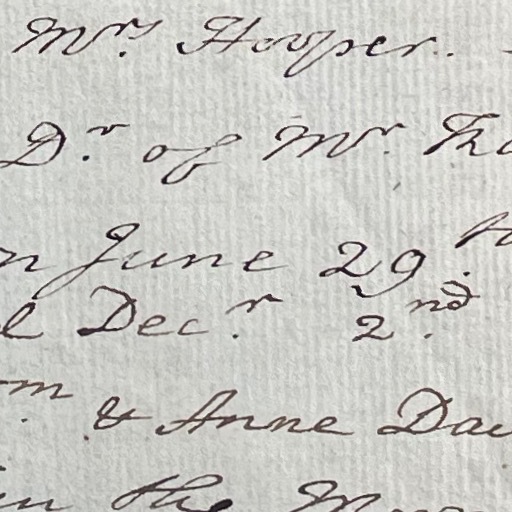 Mrs. Hooper.
Dr. of Mr. Tho
n June 29.th
l Decr. 2.nd
m. & Anne Dav
in the M